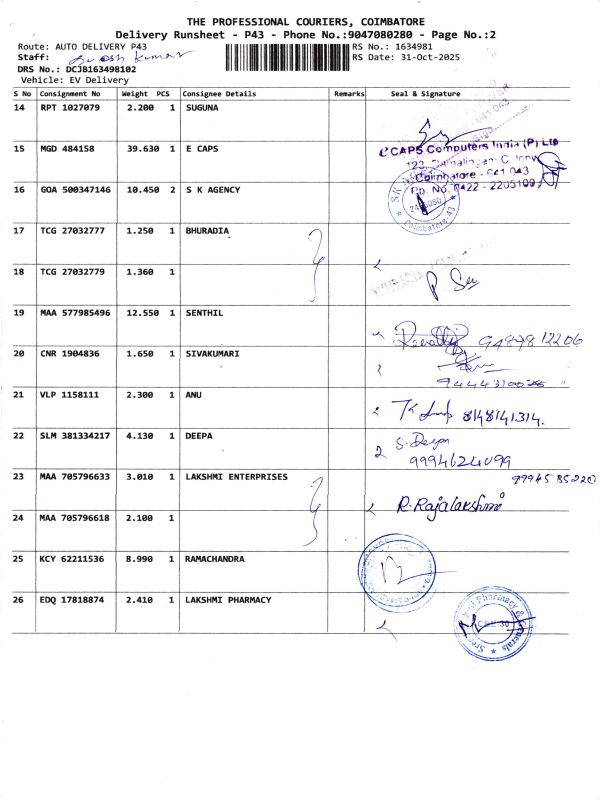 THE PROFESSIONAL COURIERS, COIMBATORE
Delivery Runsheet - P43 - Phone No.:9047080280 - Page No.:2
Route: AUTO DELIVERY P43 RS No.: 1634981
Staff: RS Date: 31-Oct-2025
DRS No.: DCJB163498102
Vehicle: EV Delivery
S No Consignment No Weight PCS Consignee Details Remarks Seal & Signature
14 RPT 1027079 2.200 1 SUGUNA
15 MGD 484158 39.630 1 E CAPS
eCAPS Computers India (P) Ltd
Coimbatore - 641 043
16 GOA 500347146 10.450 2 S K AGENCY
Ph. No. 0422 - 2205109
Coimbatore-43
17 TCG 27032777 1.250 1 BHURADIA
18 TCG 27032779 1.360 1
19 MAA 577985496 12.550 1 SENTHIL
20 CNR 1904836 1.650 1 SIVAKUMARI
21 VLP 1158111 2.300 1 ANU
8148141314.
22 SLM 381334217 4.130 1 DEEPA
S. Deepa
9994624099
23 MAA 705796633 3.010 1 LAKSHMI ENTERPRISES
R. Rajalakshmi
24 MAA 705796618 2.100 1
25 KCY 62211536 8.990 1 RAMACHANDRA
26 EDQ 17818874 2.410 1 LAKSHMI PHARMACY